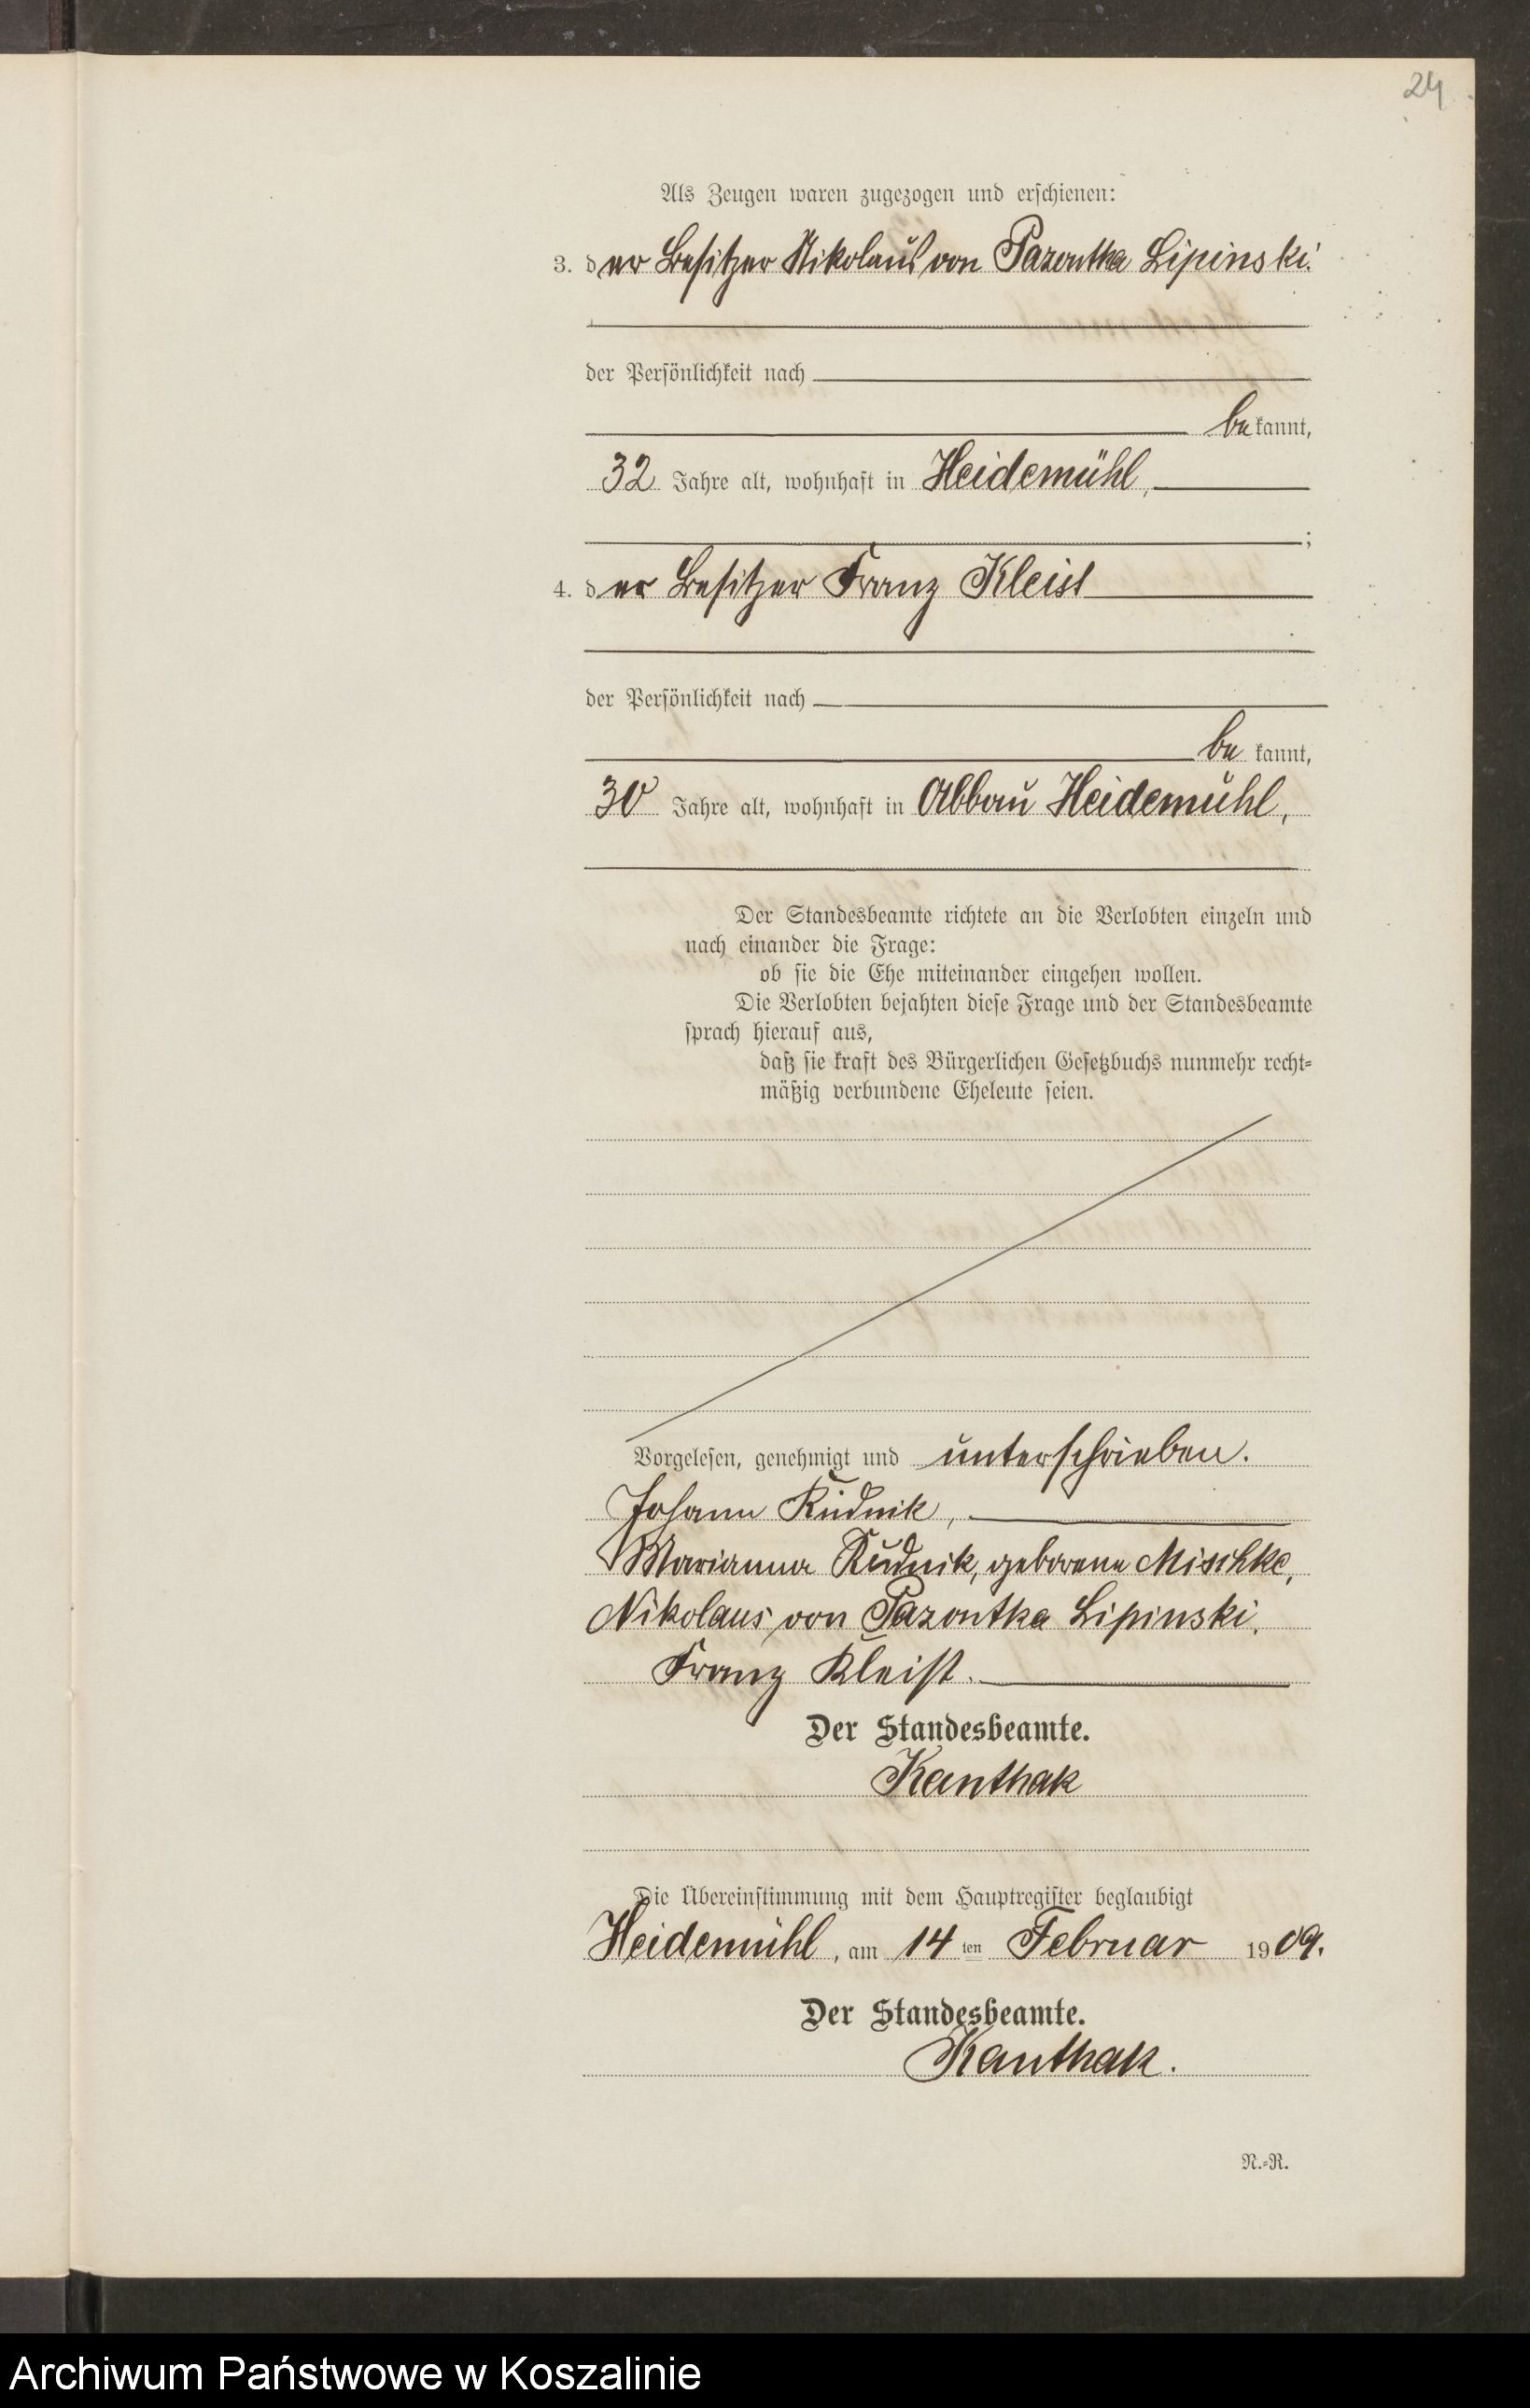 24
Als Zeugen waren zugezogen und erschienen:
3. der Besitzer Nikolaus von Pazontka Lipinski.
der Persönlichkeit nach
bekannt,
32 Jahre alt, wohnhaft in Heidemühl,
;
4. der Besitzer Franz Kleist
der Persönlichkeit nach
be kannt,
30 Jahre alt, wohnhaft in Abbau Heidemühl,
Der Standesbeamte richtete an die Verlobten einzeln und
nach einander die Frage:
ob sie die Ehe miteinander eingehen wollen.
Die Verlobten bejahten diese Frage und der Standesbeamte
sprach hierauf aus,
daß sie kraft des Bürgerlichen Gesetzbuchs nunmehr recht-
mäßig verbundene Eheleute seien.
Vorgelesen, genehmigt und unterschrieben.
Johann Rudnik,
Marianna Rudnik, geborene Mischke,
Nikolaus von Pazontka Lipinski,
Franz Kleist.
Der Standesbeamte.
Kanthak
Die Übereinstimmung mit dem Hauptregister beglaubigt
Heidemühl, am 14 ten Februar 1909.
Der Standesbeamte.
Kanthak.
N.-R.
Archiwum Państwowe w Koszalinie